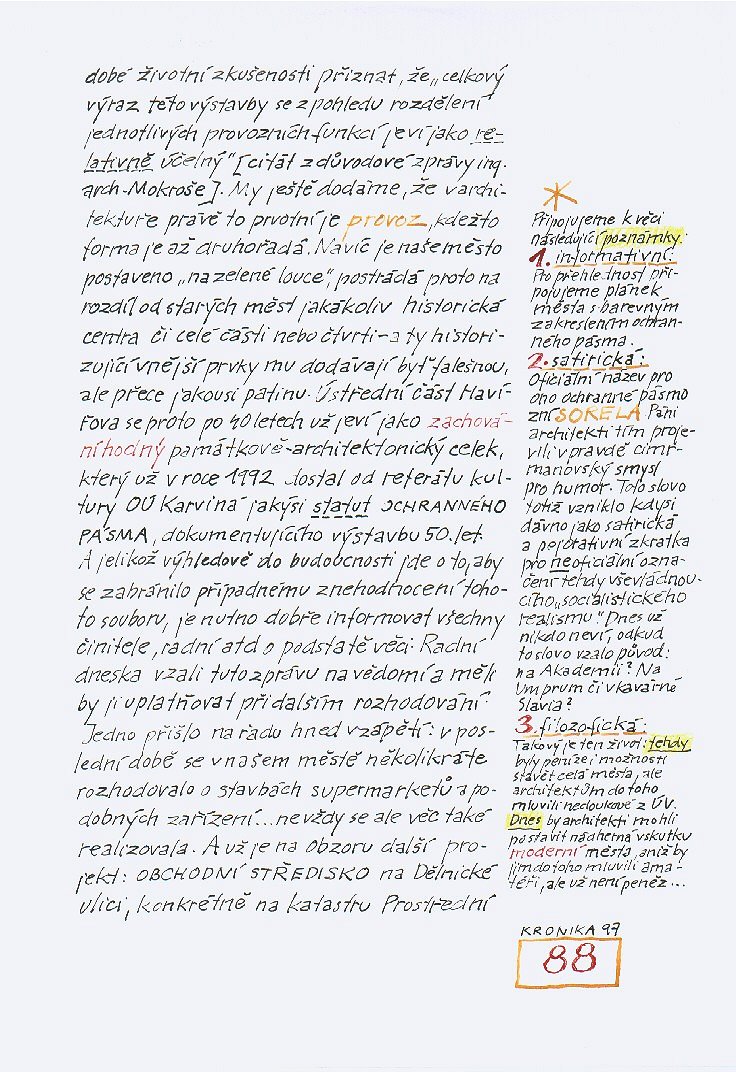 době životní zkušenosti přiznat, že „celkový
výraz této výstavby se z pohledu rozdělení
jednotlivých provozních funkcí jeví jako re-
lativně účelný" [citát z důvodové zprávy ing.
arch. Mokroše]. My ještě dodáme, že v archi-
tektuře právě to prvotní je provoz, kdežto
forma je až druhořadá. Navíc je naše město
postaveno „na zelené louce", postrádá proto na
rozdíl od starých měst jakákoliv historická
centra či celé části nebo čtvrti - a ty histori-
zující vnější prvky mu dodávají byť falešnou,
ale přece jakousi patinu. Ústřední část Haví-
řova se proto po 40 letech už jeví jako zachová-
níhodný památkově-architektonický celek,
který už v roce 1992 dostal od referátu kul-
tury OÚ Karviná jakýsi statut OCHRANNÉHO
PÁSMA, dokumentujícího výstavbu 50. let.
A jelikož výhledově do budoucnosti jde o to, aby
se zabránilo případnému znehodnocení toho-
to souboru, je nutno dobře informovat všechny
činitele, radní atd o podstatě věci. Radní
dneska vzali tuto zprávu na vědomí a měli
by ji uplatňovat při dalším rozhodování.
Jedno přišlo na řadu hned vzápětí: v pos-
lední době se v našem městě několikráte
rozhodovalo o stavbách supermarketů a po-
dobných zařízení... ne vždy se ale věc také
realizovala. A už je na obzoru další pro-
jekt: OBCHODNÍ STŘEDISKO na Dělnické
ulici, konkrétně na katastru Prostřední
*
Připojujeme k věci
následující poznámky:
1. informativní:
Pro přehlednost při-
pojujeme plánek
města s barevným
zakreslením ochran-
ného pásma.
2. satirická:
Oficiální název pro
ono ochranné pásmo
zní SORELA Páni
architekti tím proje-
vili vpravdě cimr-
manovský smysl
pro humor. Toto slovo
totiž vzniklo kdysi
dávno jako satirická
a pejorativní zkratka
pro neoficiální ozna-
čení tehdy vševládnou-
cího „socialistického
realismu". Dnes už
nikdo neví, odkud
to slovo vzalo původ:
na Akademii? Na
Umprum či v kavárně
Slavia?
3. filozofická:
Takový je ten život: tehdy
byly peníze i možnosti
stavět celá města, ale
architektům do toho
mluvili nedoukové z ÚV.
Dnes by architekti mohli
postavit nádherná vskutku
moderní města, aniž by
jim do toho mluvili ama-
téři, ale už není peněz...
KRONIKA 97
88